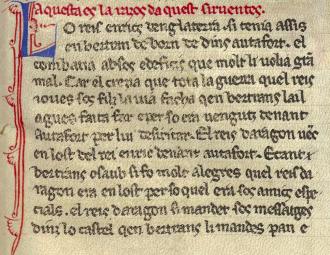 Aquesta es la razos daquest siruentes.
Lo reis enrics denglaterra si tenia assis
en bertram de born dedinz autafort. el
combatia ab sos edeficis que molt li uolia gran
mal. Car el crezia que tota la guerra quel reis
ioues sos fil lauia facha quen bertrans lail
agues faita far e per so era uengutz denant
autafort per lui desiritar. El reis daragon uenc
en lost del rei enric denant autafort. E cant
bertrans o saub si fo molt alegres quel reis da
ragon era en lost per so quel era sos amics espe
cials. el reis daragon si mandet sos messatges
dinz lo castel quen bertrans li mandes pan e